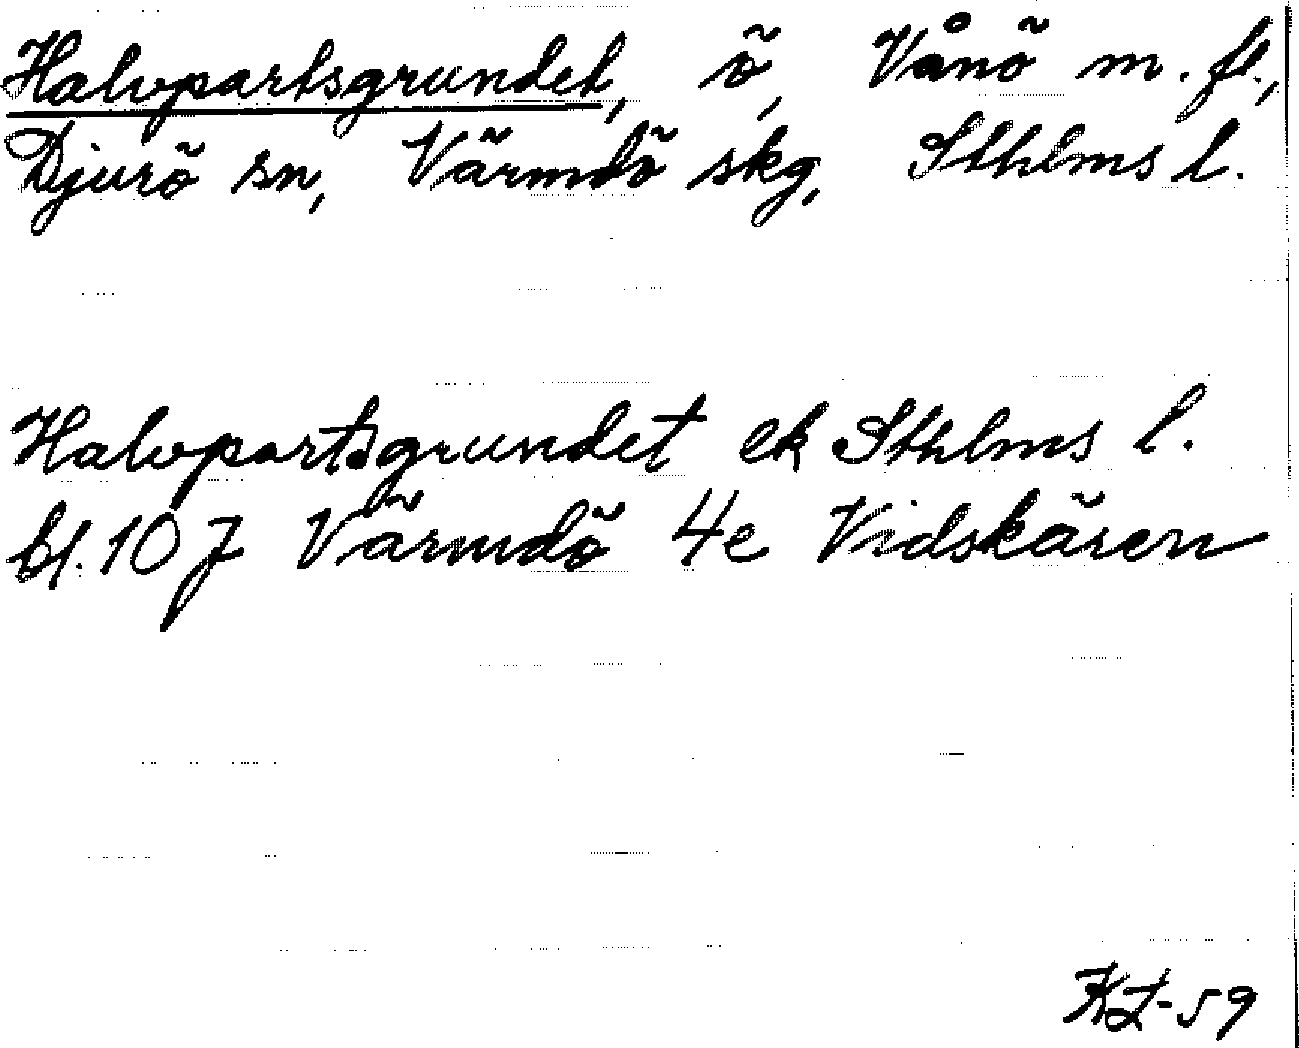 Halvpartsgrundet, ö, Vånö m. fl.,
Djurö sn, Värmdö skg, Sthlms l.
Halvpartsgrundet ek Sthlms l.
bl. 107 Värmdö 4e Vidskären
KL-59